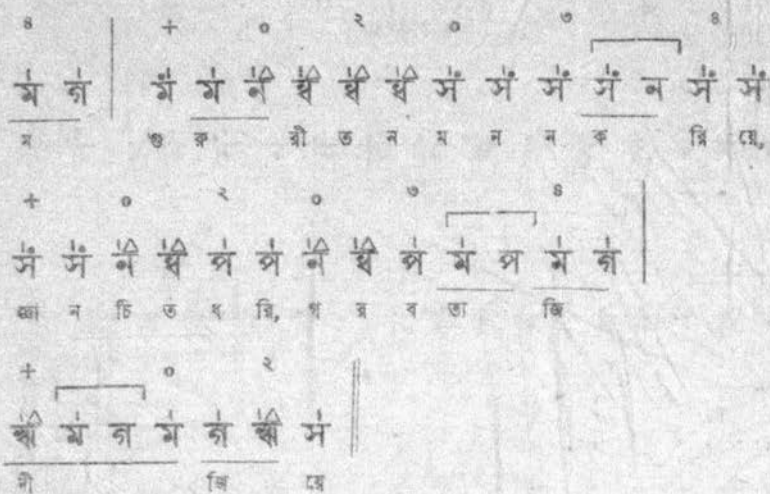 ৪ | + ০ ২ ০ ৩ ৪
ম গ | ম ম ন ধ ধ ধ স স স স ন স স
ম গু রু রী ত ন ম ন ন ক রি য়ে,
+ ০ ২ ০ ৩ ৪
স স ন ধ প প ন ধ প ম প ম গ |
জ্ঞা ন চি ত ধ রি, গ র ব তা জি
+ ০ ২
ঋ ম গ ম গ ঋ স ||
মী জি য়ে